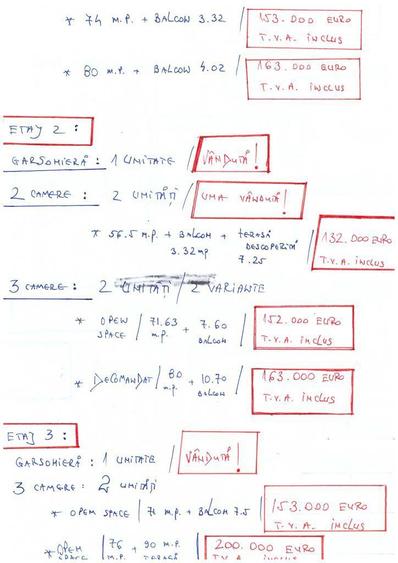 * 74 M.P. + BALCON 3.32 / 153.000 EURO
T.V.A. INCLUS
* 80 M.P. + BALCON 4.02 / 163.000 EURO
T.V.A. INCLUS
ETAJ 2 :
GARSONIERĂ : 1 UNITATE / VÂNDUTĂ !
2 CAMERE : 2 UNITĂȚI / UNA VÂNDUTĂ !
* 56.5 M.P. + BALCON + TERASĂ / 132.000 EURO
3.32 mp DESCOPERITĂ
7.25 T.V.A. INCLUS
3 CAMERE : 2 UNITĂȚI / 2 VARIANTE
* OPEN SPACE / 71.63 M.P. + 7.60 BALCON / 152.000 EURO
T.V.A. INCLUS
* DECOMANDAT / 80 M.P. + 10.70 BALCON / 163.000 EURO
T.V.A. INCLUS
ETAJ 3 :
GARSONIERĂ : 1 UNITATE / VÂNDUTĂ !
3 CAMERE : 2 UNITĂȚI
* OPEN SPACE / 71 M.P. + BALCON 7.5 / 153.000 EURO
T.V.A. INCLUS
* OPEN SPACE / 76 M.P. + 90 M.P. TERASĂ / 200.000 EURO
T.V.A. INCLUS